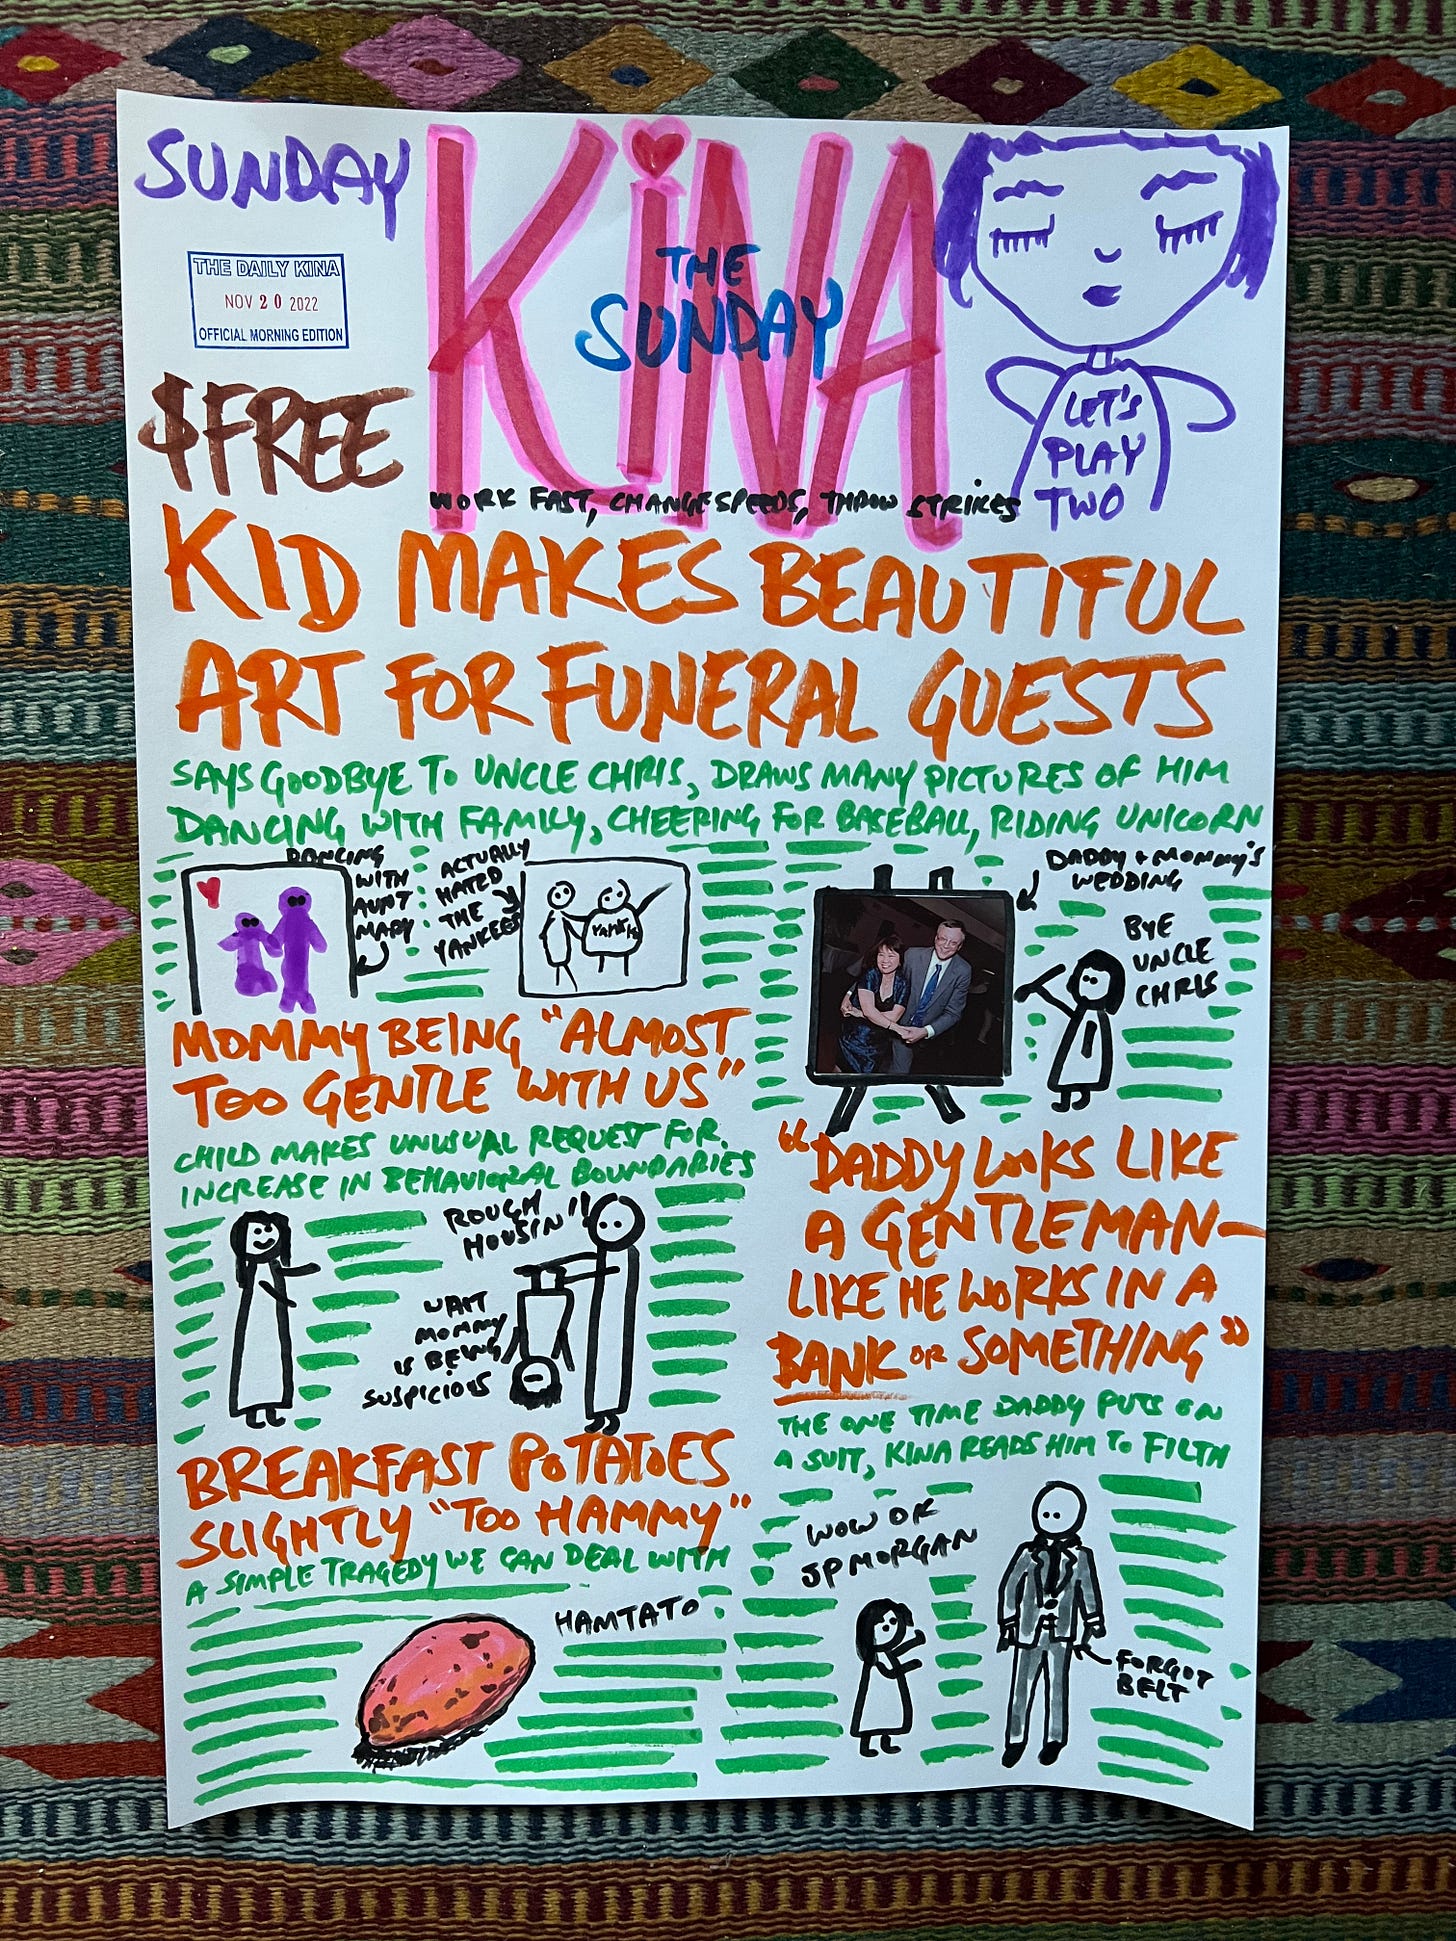 SUNDAY
KiNA
THE
SUNDAY
THE DAILY KINA
NOV 20 2022
OFFICIAL MORNING EDITION
$FREE
LET'S
PLAY
TWO
WORK FAST, CHANGE SPEEDS, THROW STRIKES
KID MAKES BEAUTIFUL
ART FOR FUNERAL GUESTS
SAYS GOODBYE TO UNCLE CHRIS, DRAWS MANY PICTURES OF HIM
DANCING WITH FAMILY, CHEERING FOR BASEBALL, RIDING UNICORN
DANCING
WITH
AUNT
MARY
ACTUALLY
HATED
THE
YANKEES
DADDY + MOMMY'S
WEDDING
BYE
UNCLE
CHRIS
MOMMY BEING "ALMOST
TOO GENTLE WITH US"
CHILD MAKES UNUSUAL REQUEST FOR
INCREASE IN BEHAVIORAL BOUNDARIES
ROUGH
HOUSIN'!!
WAIT
MOMMY
IS BEING
SUSPICIOUS
"DADDY LOOKS LIKE
A GENTLEMAN—
LIKE HE WORKS IN A
BANK OR SOMETHING"
THE ONE TIME DADDY PUTS ON
A SUIT, KINA READS HIM TO FILTH
WOW OK
JPMORGAN
FORGOT
BELT
BREAKFAST POTATOES
SLIGHTLY "TOO HAMMY"
A SIMPLE TRAGEDY WE CAN DEAL WITH
HAMTATO